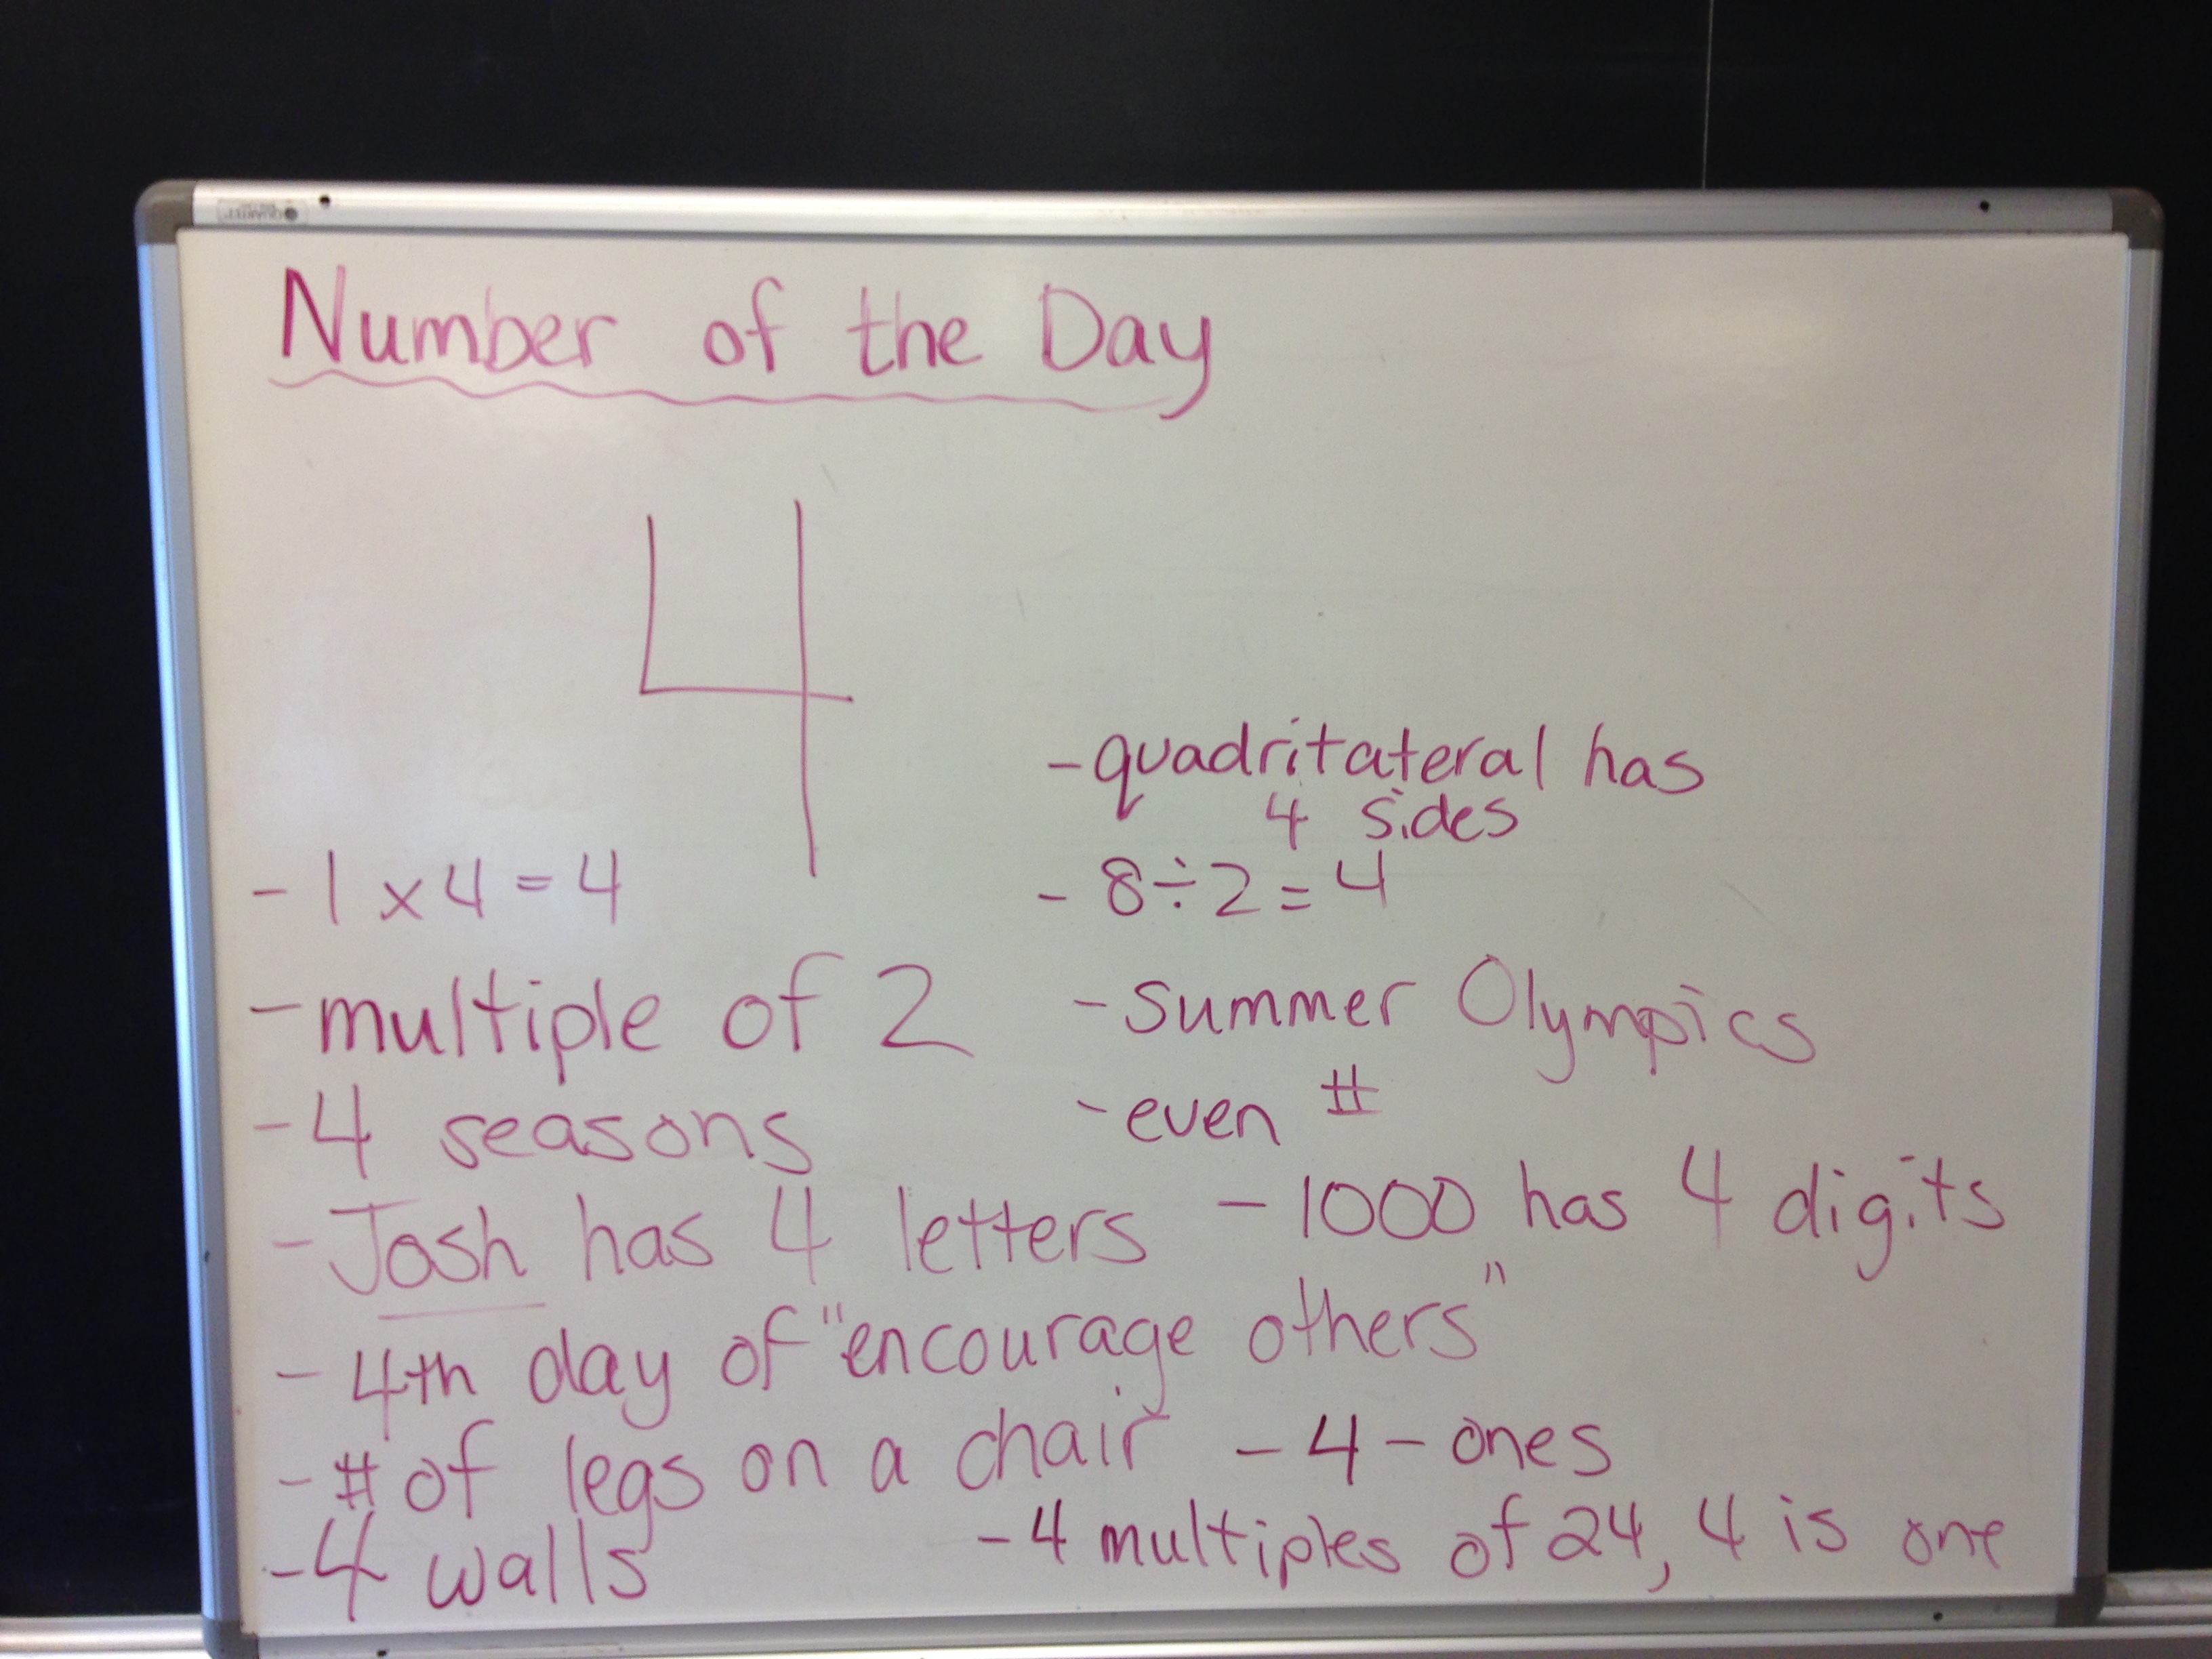 Number of the Day
4
- 1 x 4 = 4
- multiple of 2
- 4 seasons
- Josh has 4 letters
- 4th day of "encourage others"
- # of legs on a chair
- 4 walls
- quadritateral has
4 sides
- 8 ÷ 2 = 4
- Summer Olympics
- even #
- 1000 has 4 digits
- 4 - ones
- 4 multiples of 24, 4 is one
QUARTET